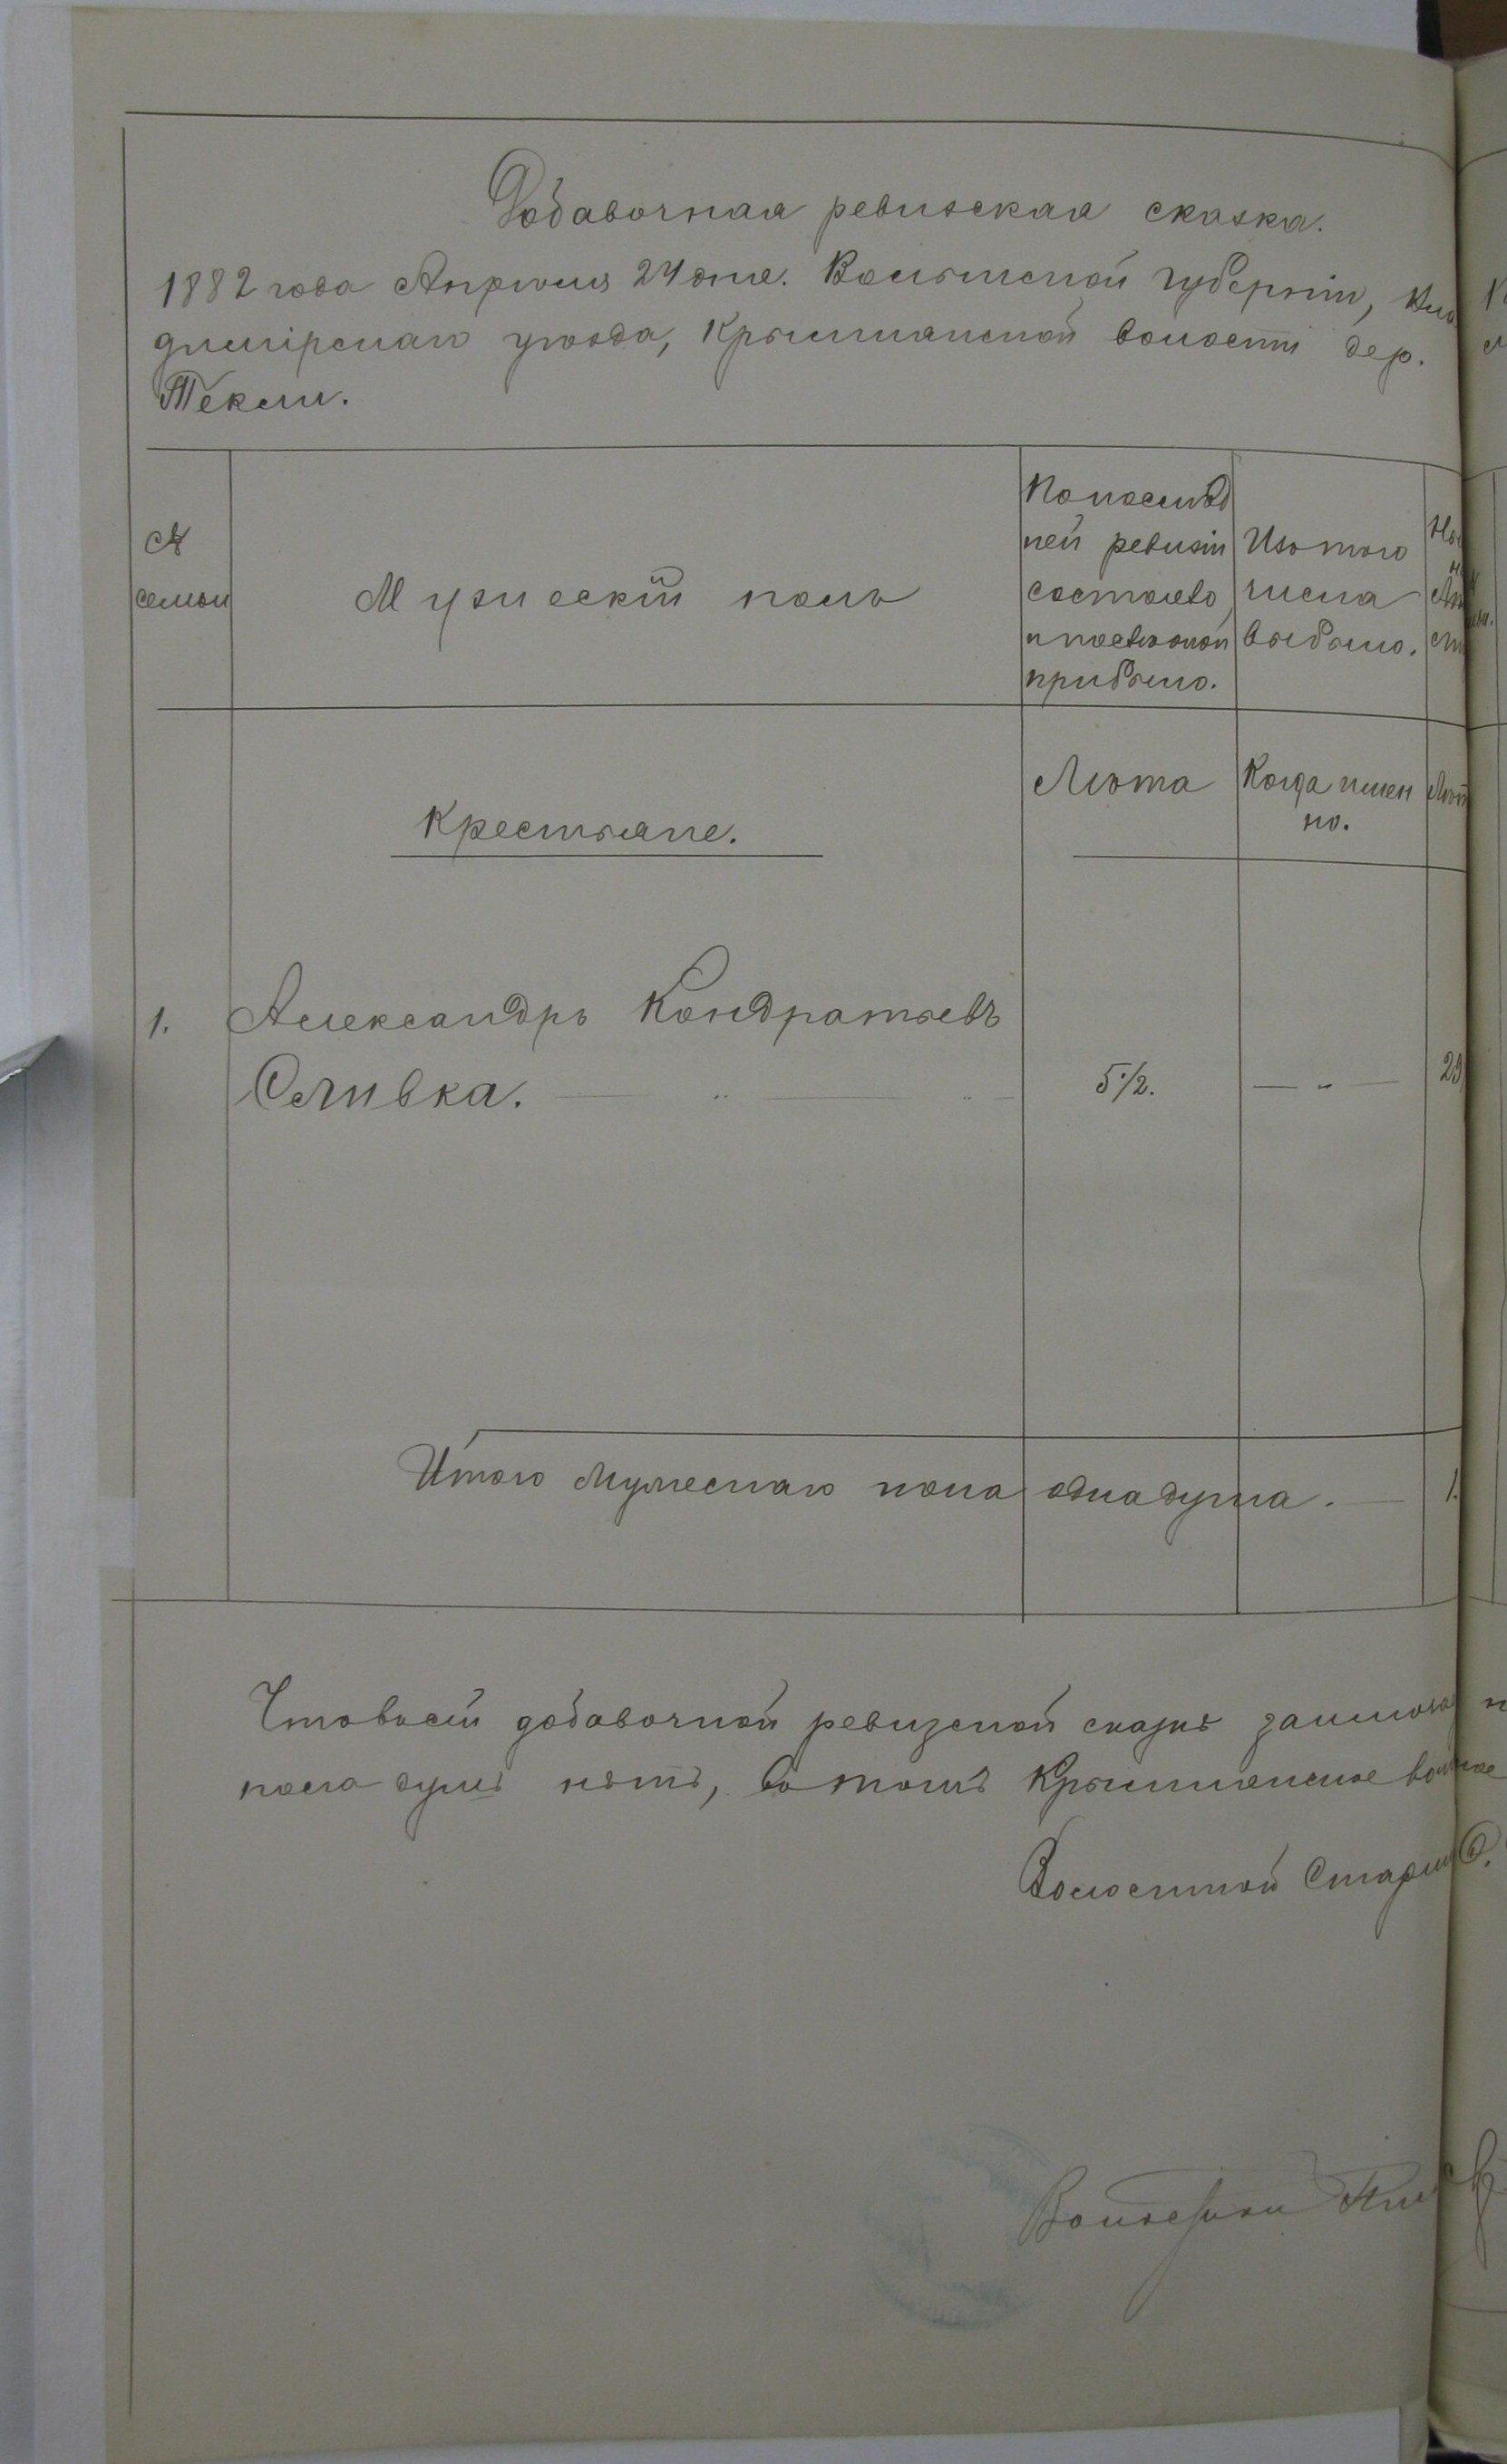 Добавочная ревизская сказка.
1882 года Апрѣля 24 дня. Волынской губерніи, Вла
димірскаго уѣзда, Крымнанской волости дер.
Текли.
№ семьи
Мужескій полъ
По послѣд
ней ревизіи
состояло
и послѣ оной
прибыло.
Изъ того
числа
выбыло.
Крестьяне.
Лѣта
Когда имен
но.
1. Александръ Кондратьевъ
Сливка. 5 1/2. — „ — 29
Итого мужескаго пола одна душа. — 1.
Что въ сей добавочной ревизской сказкѣ
пола душъ нѣтъ, въ томъ Крымненское
Волостной Старши